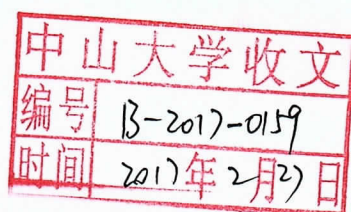 中山大学收文
编号 B-2017-0159
时间 2017年2月27日